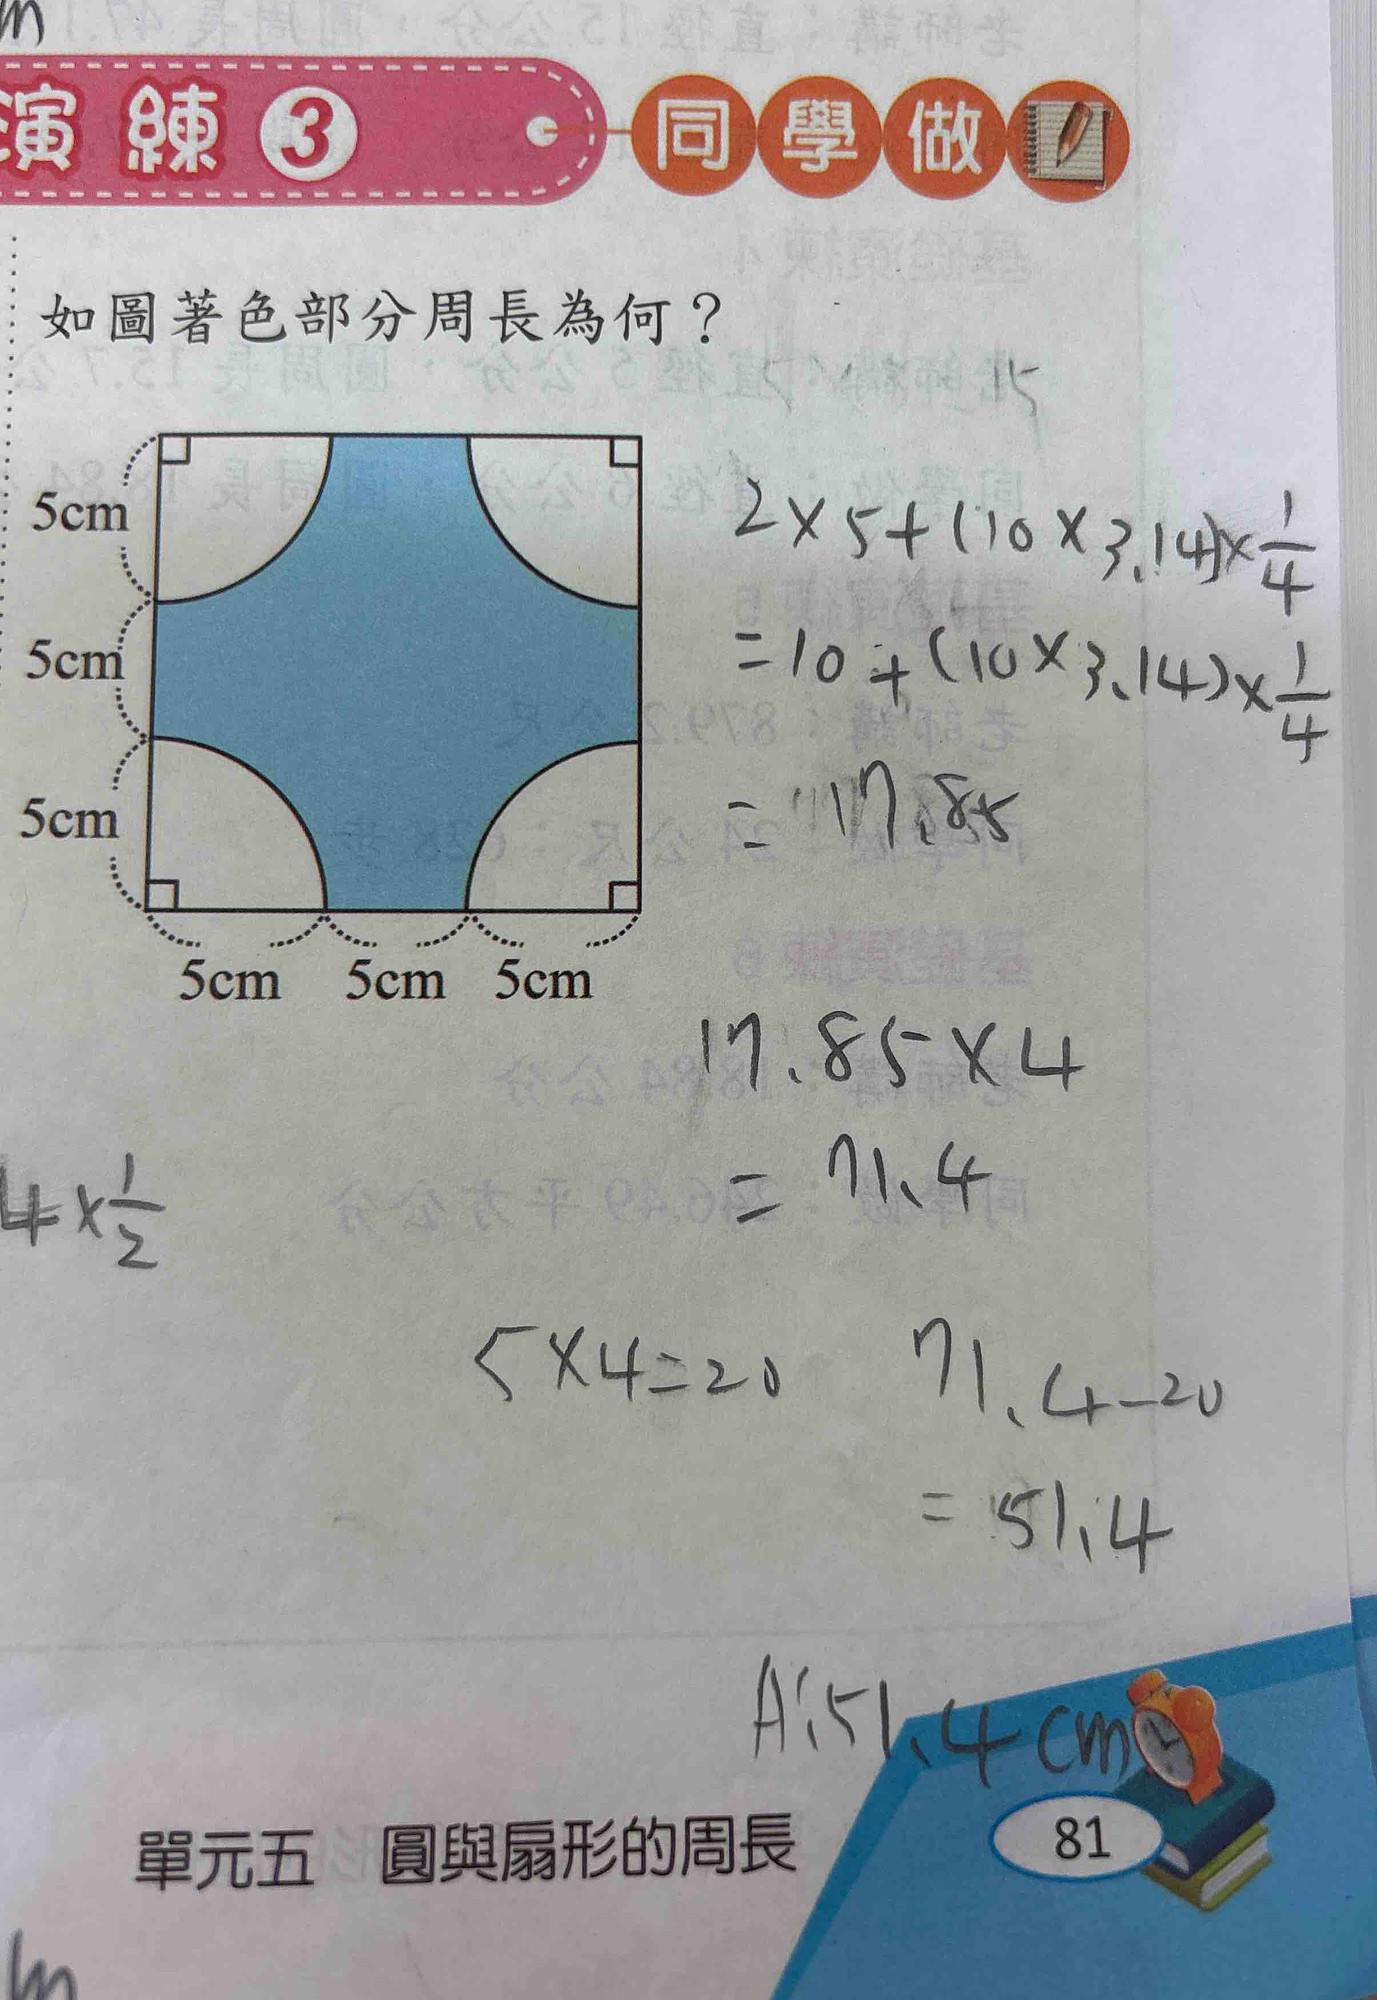 演練3 同學做
如圖著色部分周長為何？
5cm
5cm
5cm
5cm 5cm 5cm
15
2×5+(10×3.14)×1/4
=10+(10×3.14)×1/4
=17.85
17.85×4
=71.4
4×1/2
5×4=20
71.4-20
=51.4
A:51.4cm
單元五 圓與扇形的周長
81